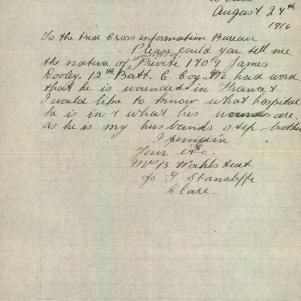 August 24th
1916
To the Red Cross Information Bureau
Please could you tell me
the nature of Private 1709 James
Dooley. 12th Batt. C Coy. We had word
that he is wounded in France &
I would like to know what hospital
he is in & what his wounds are.
as he is my husbands step-brother
I remain
Your etc.
Mrs B
C/o T Stancliffe
Clare.